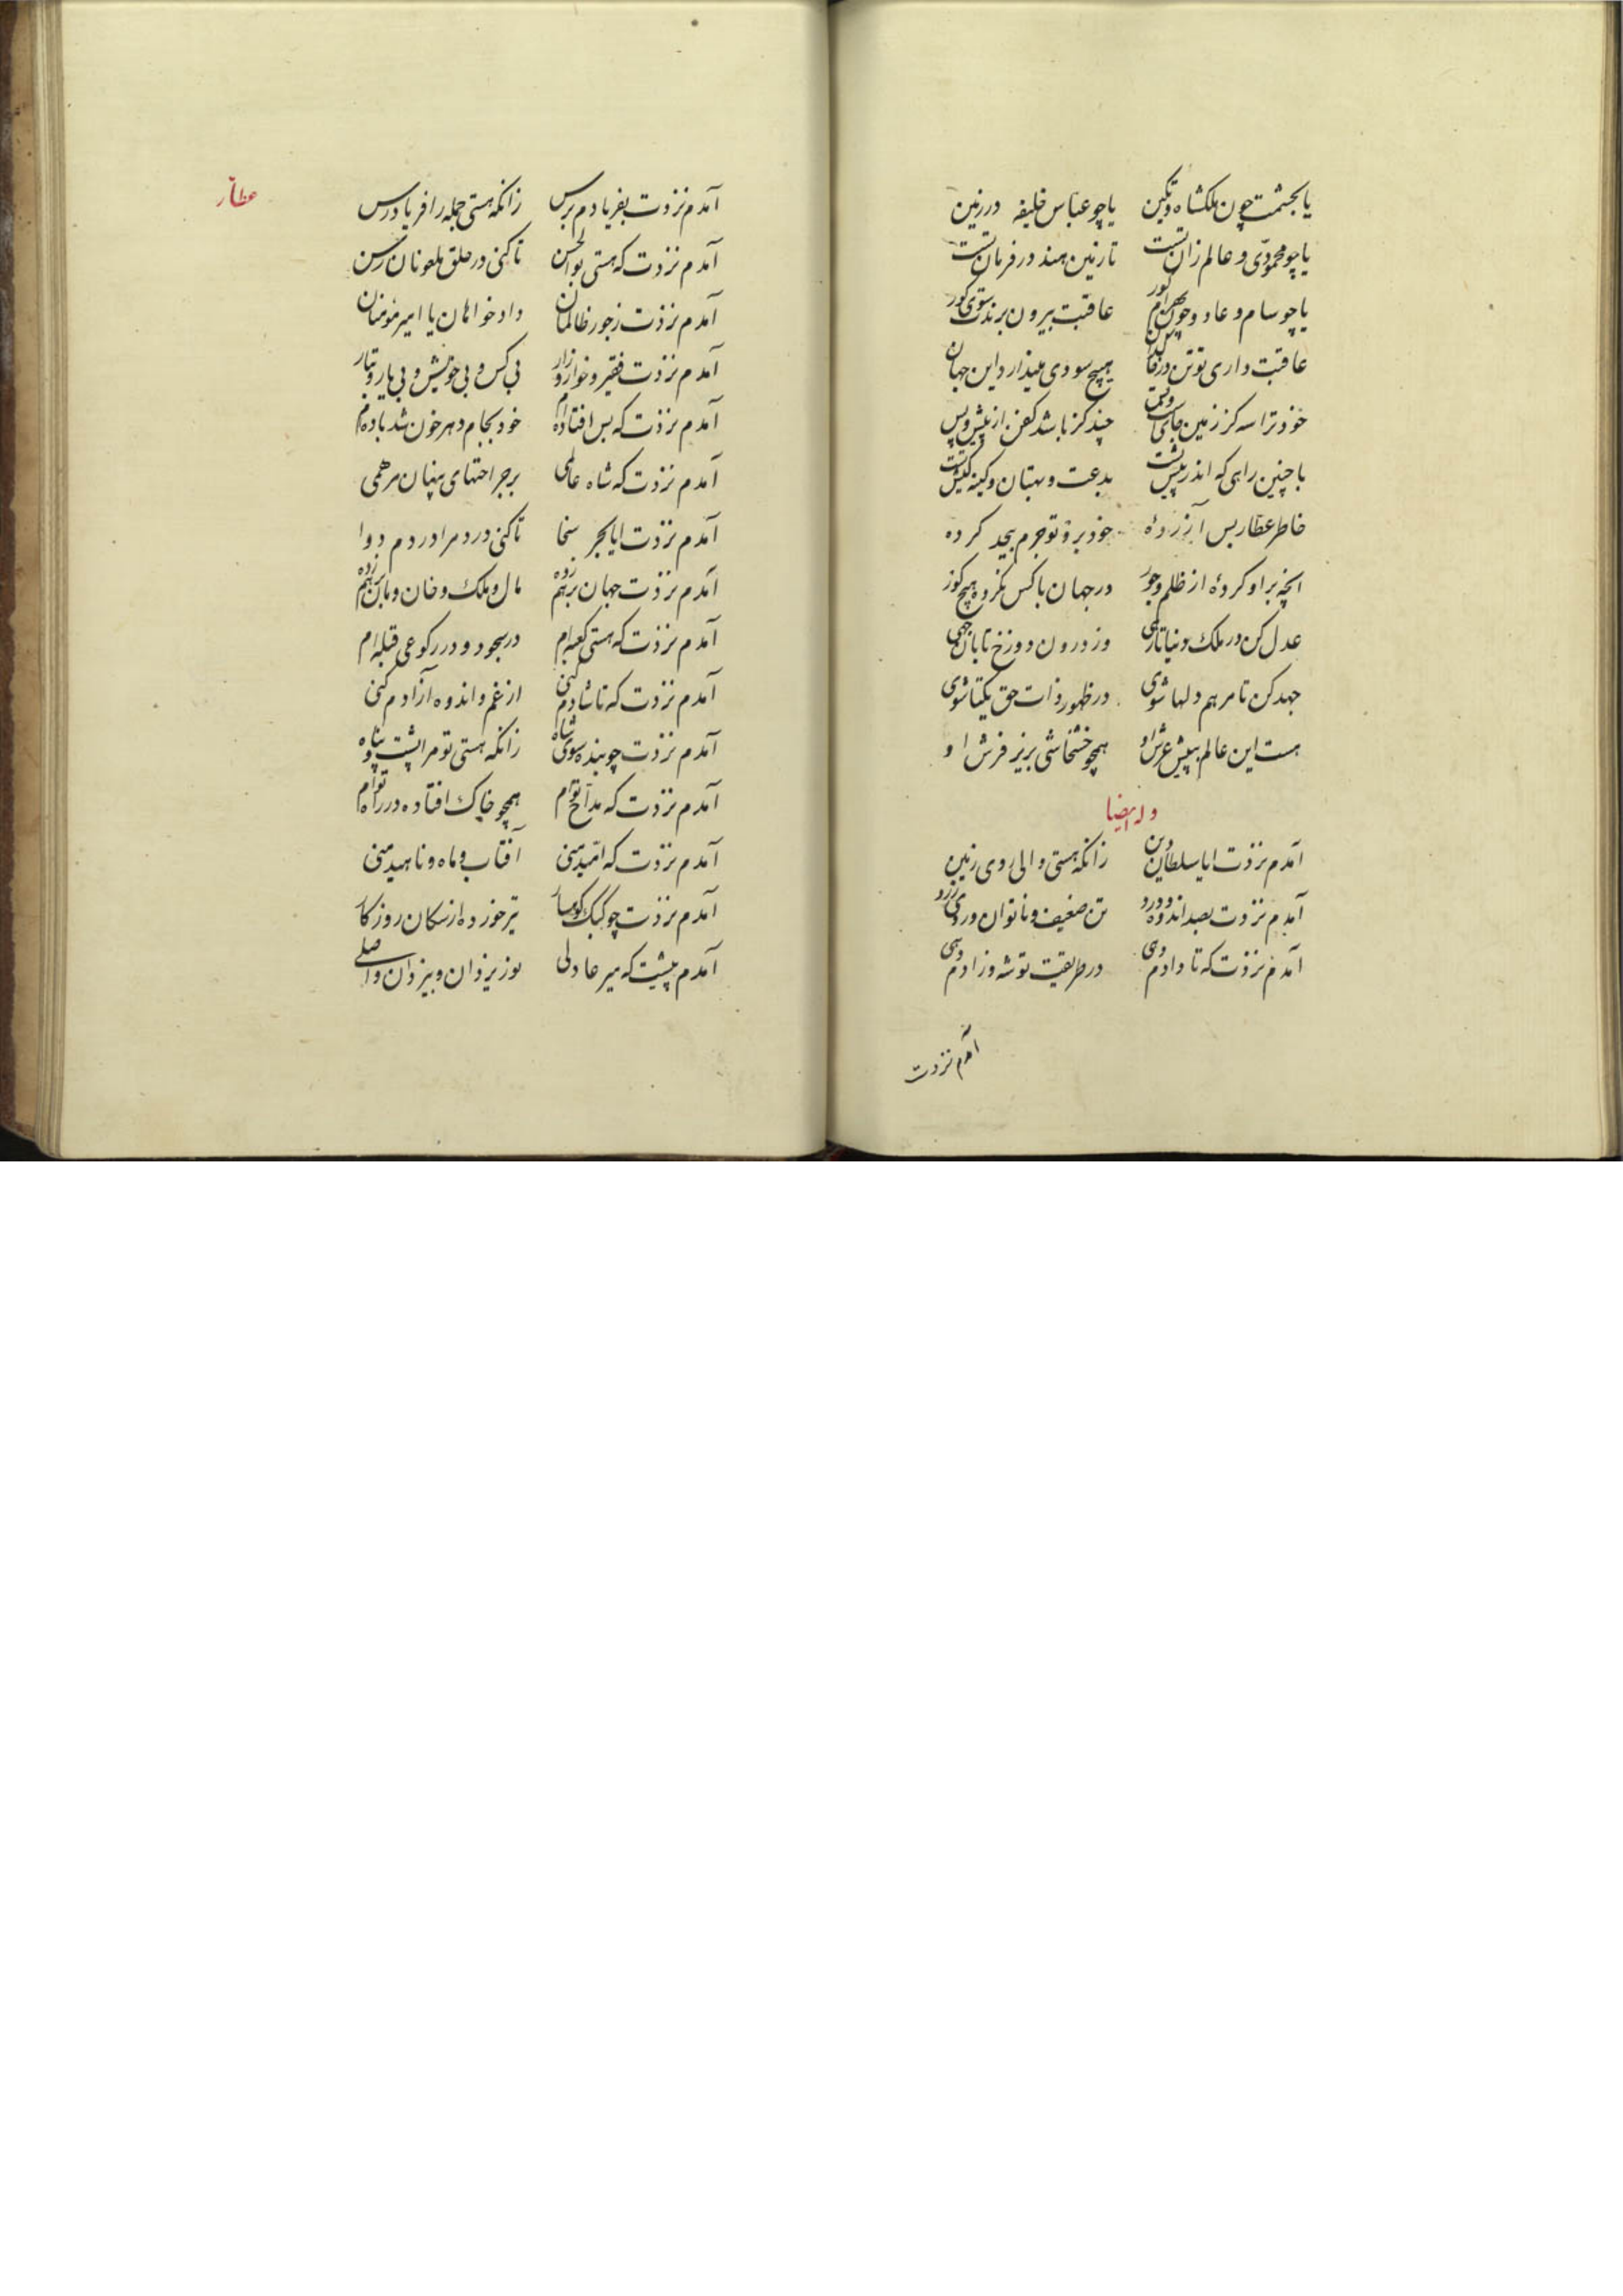 یا بحشمت چون ملکشاه و تکین یا چو عباس خلیفه در زمین
یا چو محمودی و عالم زان تست تا زمین هند در فرمان تست
یا چو سام و عاد و چون بهرام گور عاقبت بیرون برندت سوی گور
عاقبت داری تو تن در هیچ سودی میندارد این جهان
خود ترا سه گز زمین جای و بس چند گز باشد کفن از پیش و پس
با چنین راهی که اندر پیش تست بدعت و بهتان و کینه کیش تست
خاطر عطار بس آزردهٔ خود برو تو جرم بیحد کرده
آنچه بر او کردهٔ از ظلم و جور در جهان با کس نکرده هیچ
عدل کن در ملک دنیا تا رهی وز درون دوزخ تابان جهی
جهد کن تا مرهم دلها شوی در ظهور ذات حق یکتا شوی
هست این عالم بپیش عرش او همچو خشخاشی بریز فرش او
وله ایضا
آمدم نزدت ایا سلطان دین زانکه هستی والی روی زمین
آمدم نزدت بصد اندوه و درد تن ضعیف و ناتوان و روی زرد
آمدم نزدت که تا دادم دهی در طریقت توشه و زادم دهی
آمدم نزدت
عطّار
آمدم نزدت بفریادم برس زانکه هستی جمله را فریادرس
آمدم نزدت که هستی بوالحسن تا کنی در حلق ملعونان رسن
آمدم نزدت ز جور ظالمان داد خواهان یا امیر مؤمنان
آمدم نزدت فقیر و خوار و زار بی کس و بی خویش و بی یار و تبار
آمدم نزدت که بس افتاده‌ام خود بجام دهر خون شد باده‌ام
آمدم نزدت که شاه عالمی بر جراحتهای پنهان مرهمی
آمدم نزدت ایا بحر سخا تا کنی درد مرا در دم دوا
آمدم نزدت جهان بر هم زده مال و ملک و خان و مان بر هم زده
آمدم نزدت که هستی کعبه‌ام در سجود و در رکوعی قبله‌ام
آمدم نزدت که تا شادم کنی از غم و اندوه آزادم کنی
آمدم نزدت چو بنده سوی شاه زانکه هستی تو مرا پشت و پناه
آمدم نزدت که مداح توام همچو خاک افتاده در راه توام
آمدم نزدت که امّید منی آفتاب و ماه و ناهید منی
آمدم نزدت چو کبک کوهسار تیر خورده از سکان روزکار
آمدم پیشت که میر عادلی نور یزدان و بیزدان واصلی